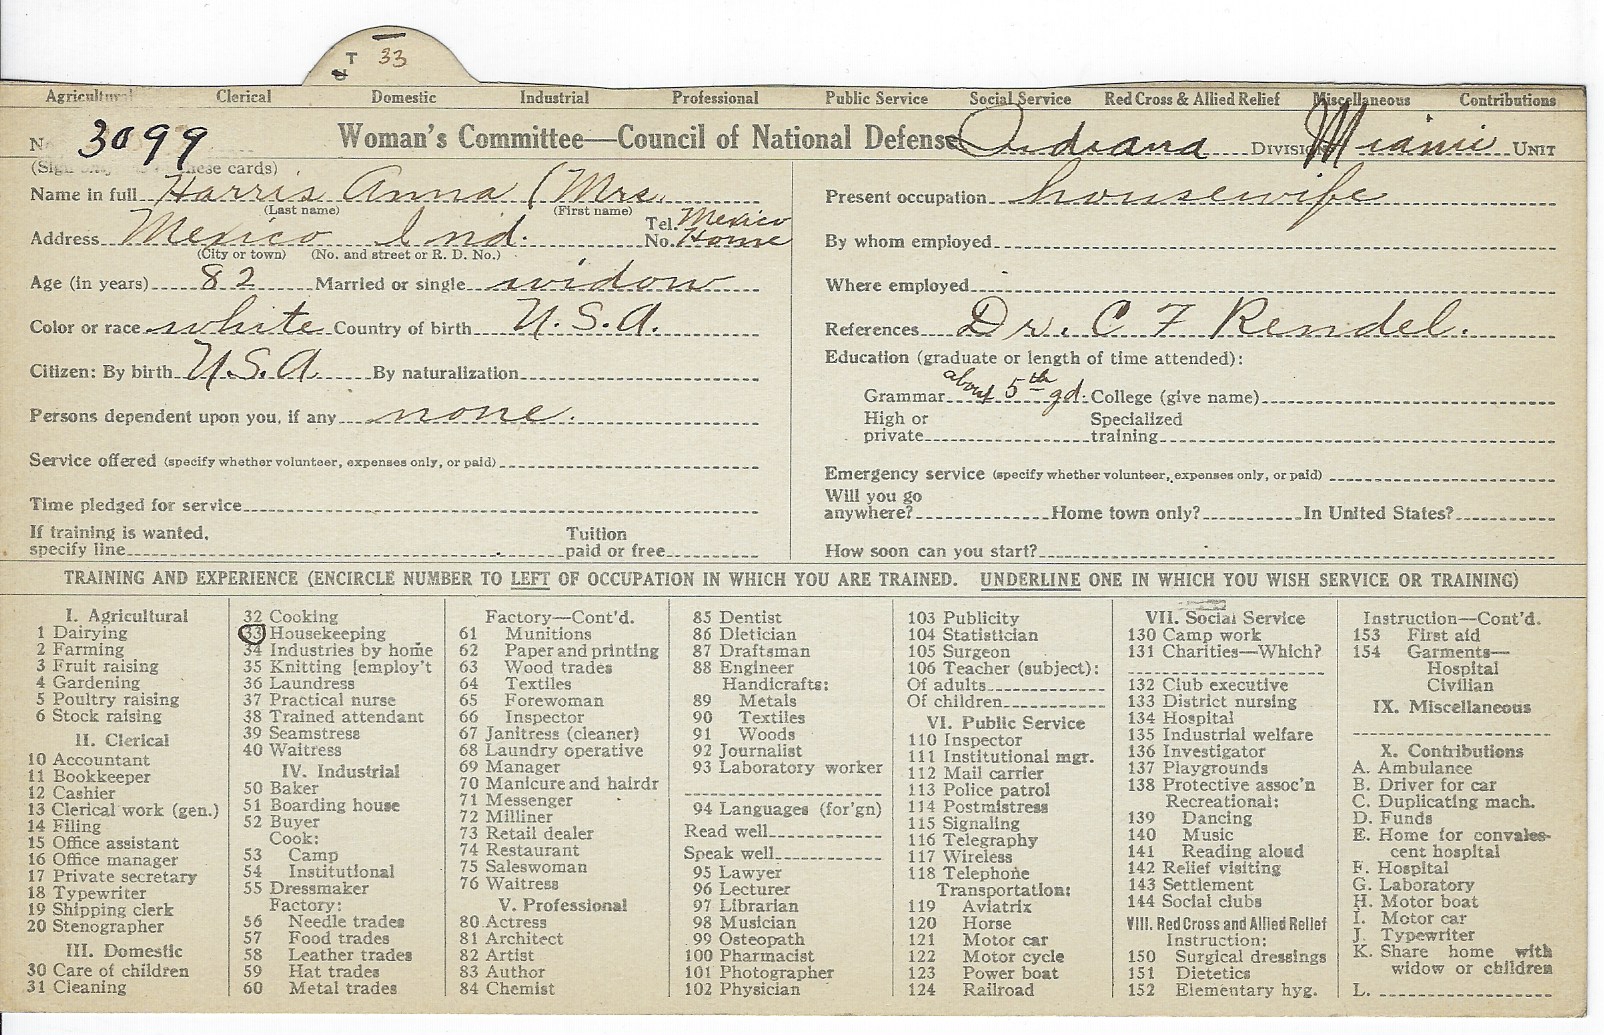 T 33
U
Agricultural Clerical Domestic Industrial Professional Public Service Social Service Red Cross & Allied Relief Miscellaneous Contributions
No. 3099 Woman's Committee—Council of National Defense Indiana DIVISION Miami UNIT
(Sign these cards)
Name in full Harris Anna (Mrs.
(Last name) (First name)
Address Mexico Ind. Tel. No. Mexico Home
(City or town) (No. and street or R. D. No.)
Age (in years) 82 Married or single widow
Color or race white Country of birth U.S.A.
Citizen: By birth U.S.A By naturalization
Persons dependent upon you, if any none.
Service offered (specify whether volunteer, expenses only, or paid)
Time pledged for service
If training is wanted, Tuition
specify line paid or free
Present occupation housewife
By whom employed
Where employed
References Dr. C F Rendel.
Education (graduate or length of time attended):
Grammar about 5th gd. College (give name)
High or Specialized
private training
Emergency service (specify whether volunteer, expenses only, or paid)
Will you go
anywhere? Home town only? In United States?
How soon can you start?
TRAINING AND EXPERIENCE (ENCIRCLE NUMBER TO LEFT OF OCCUPATION IN WHICH YOU ARE TRAINED. UNDERLINE ONE IN WHICH YOU WISH SERVICE OR TRAINING)
I. Agricultural
1 Dairying
2 Farming
3 Fruit raising
4 Gardening
5 Poultry raising
6 Stock raising
II. Clerical
10 Accountant
11 Bookkeeper
12 Cashier
13 Clerical work (gen.)
14 Filing
15 Office assistant
16 Office manager
17 Private secretary
18 Typewriter
19 Shipping clerk
20 Stenographer
III. Domestic
30 Care of children
31 Cleaning
32 Cooking
33 Housekeeping
34 Industries by home
35 Knitting [employ't
36 Laundress
37 Practical nurse
38 Trained attendant
39 Seamstress
40 Waitress
IV. Industrial
50 Baker
51 Boarding house
52 Buyer
Cook:
53 Camp
54 Institutional
55 Dressmaker
Factory:
56 Needle trades
57 Food trades
58 Leather trades
59 Hat trades
60 Metal trades
Factory—Cont'd.
61 Munitions
62 Paper and printing
63 Wood trades
64 Textiles
65 Forewoman
66 Inspector
67 Janitress (cleaner)
68 Laundry operative
69 Manager
70 Manicure and hairdr
71 Messenger
72 Milliner
73 Retail dealer
74 Restaurant
75 Saleswoman
76 Waitress
V. Professional
80 Actress
81 Architect
82 Artist
83 Author
84 Chemist
85 Dentist
86 Dietician
87 Draftsman
88 Engineer
Handicrafts:
89 Metals
90 Textiles
91 Woods
92 Journalist
93 Laboratory worker
94 Languages (for'gn)
Read well
Speak well
95 Lawyer
96 Lecturer
97 Librarian
98 Musician
99 Osteopath
100 Pharmacist
101 Photographer
102 Physician
103 Publicity
104 Statistician
105 Surgeon
106 Teacher (subject):
Of adults
Of children
VI. Public Service
110 Inspector
111 Institutional mgr.
112 Mail carrier
113 Police patrol
114 Postmistress
115 Signaling
116 Telegraphy
117 Wireless
118 Telephone
Transportation:
119 Aviatrix
120 Horse
121 Motor car
122 Motor cycle
123 Power boat
124 Railroad
VII. Social Service
130 Camp work
131 Charities—Which?
132 Club executive
133 District nursing
134 Hospital
135 Industrial welfare
136 Investigator
137 Playgrounds
138 Protective assoc'n
Recreational:
139 Dancing
140 Music
141 Reading aloud
142 Relief visiting
143 Settlement
144 Social clubs
VIII. Red Cross and Allied Relief
Instruction:
150 Surgical dressings
151 Dietetics
152 Elementary hyg.
Instruction—Cont'd.
153 First aid
154 Garments—
Hospital
Civilian
IX. Miscellaneous
X. Contributions
A. Ambulance
B. Driver for car
C. Duplicating mach.
D. Funds
E. Home for convales-
cent hospital
F. Hospital
G. Laboratory
H. Motor boat
I. Motor car
J. Typewriter
K. Share home with
widow or children
L.